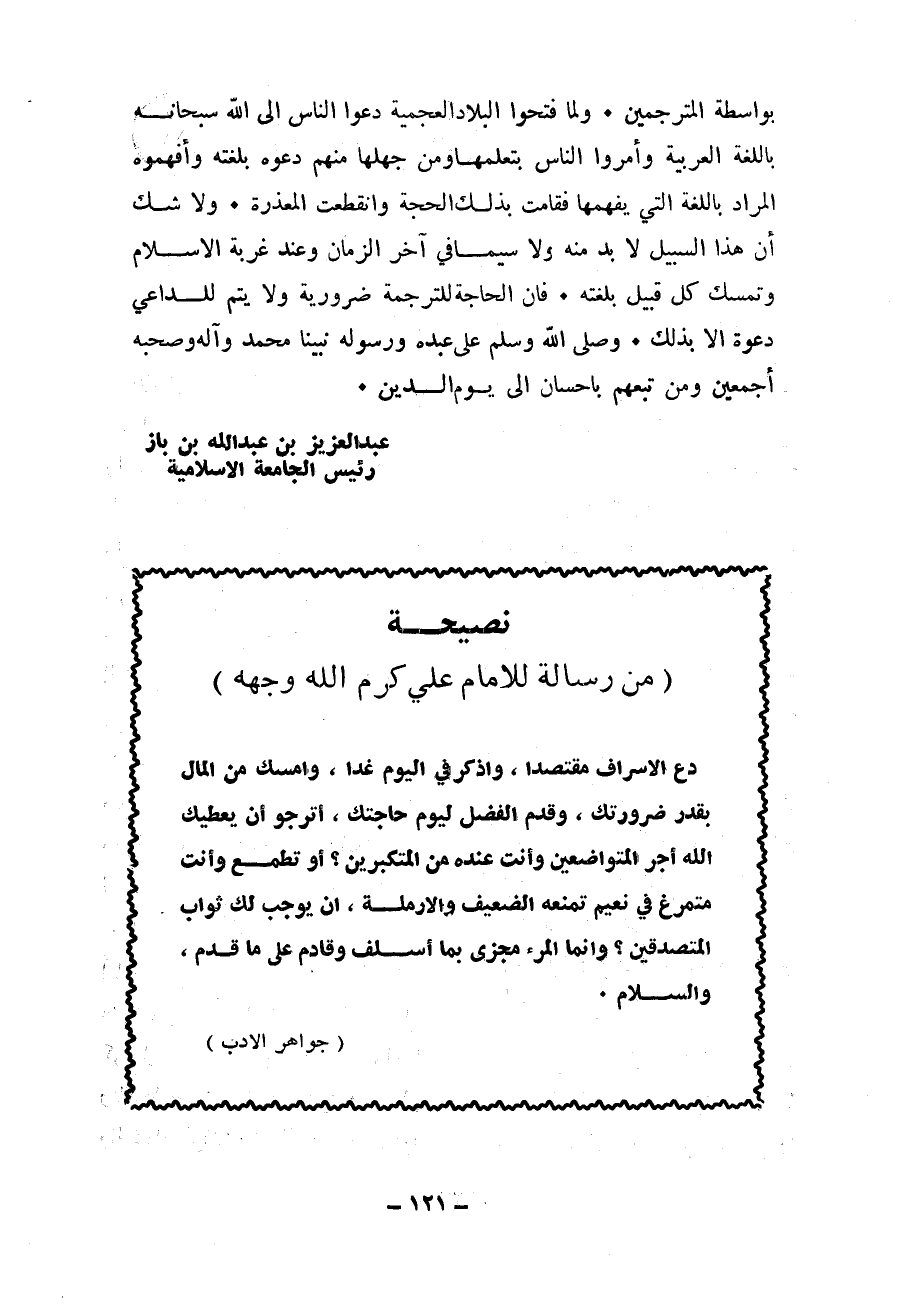 بواسطة المترجمين ٠ ولما فتحوا البلادالعجمية دعوا الناس الى الله سبحانـــه
باللغة العربية وأمروا الناس بتعلمهـاومن جهلها منهم دعوه بلغته وأفهموه
المراد باللغة التي يفهمها فقامت بذلـكالحجة وانقطعت المعذرة ٠ ولا شـك
أن هذا السبيل لا بد منه ولا سيمــافي آخر الزمان وعند غربة الاســلام
وتمسك كل قبيل بلغته ٠ فان الحاجةللترجمة ضرورية ولا يتم للـداعي
دعوة الا بذلك ٠ وصلى الله وسلم علىعبده ورسوله نبينا محمد وآلهوصحبه
أجمعين ومن تبعهم باحسان الى يـومالـدين ٠
عبدالعزيز بن عبدالله بن باز
رئيس الجامعة الاسلامية
نصيحـــة
( من رسالة للامام علي كرم الله وجهه )
دع الاسراف مقتصدا ، واذكر في اليوم غدا ، وامسك من المال
بقدر ضرورتك ، وقدم الفضل ليوم حاجتك ، أترجو أن يعطيك
الله أجر المتواضعين وأنت عنده من المتكبرين ؟ أو تطمــع وأنت
متمرغ في نعيم تمنعه الضعيف والارملــة ، ان يوجب لك ثواب
المتصدقين ؟ وانما المرء مجزى بما أســلف وقادم على ما قـدم ،
والســلام ٠
( جواهر الادب )
ـ ١٢١ ـ